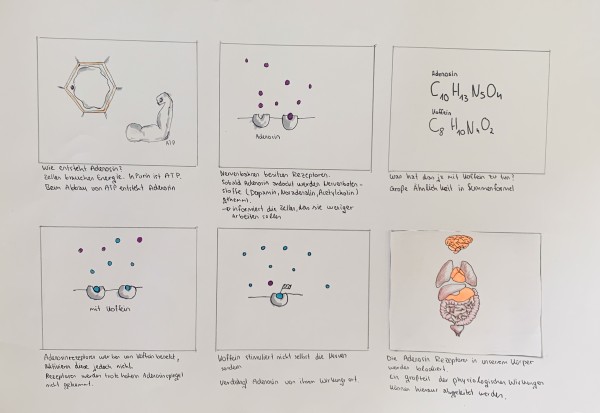 ATP
Wie entsteht Adenosin?
Zellen brauchen Energie. In Purin ist ATP.
Beim Abbau von ATP entsteht Adenosin
Adenosin
Nervenbahnen besitzen Rezeptoren.
Sobald Adenosin andockt werden Nervenboten-
stoffe (Dopamin, Noradrenalin, Acetylcholin)
gehemmt.
→ informiert die Zellen, dass sie weniger
arbeiten sollen
Adenosin
C10 H13 N5O4
Koffein
C8 H10N4O2
Was hat das ja mit Koffein zu tun?
Große Ähnlichkeit in Summenformel
mit Koffein
Adenosinrezeptoren werden von Koffein besetzt,
aktivieren diese jedoch nicht.
Rezeptoren werden trotz hohem Adenosinspiegel
nicht gehemmt.
Koffein stimuliert nicht selbst die Nerven
sondern
Verdrängt Adenosin von ihrem Wirkungsort.
Die Adenosin Rezeptoren in unserem Körper
werden blockiert.
Ein großteil der physiologischen Wirkungen
können hieraus abgeleitet werden.